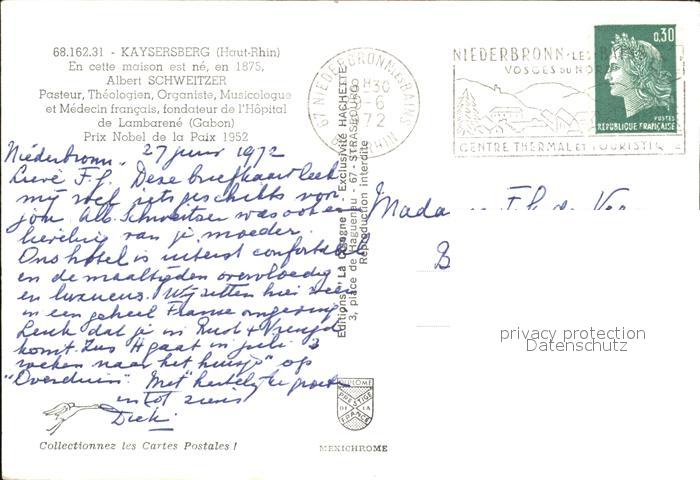 68.162.31 - KAYSERSBERG (Haut-Rhin)
En cette maison est né, en 1875,
Albert SCHWEITZER
Pasteur, Théologien, Organiste, Musicologue
et Médecin français, fondateur de l'Hôpital
de Lambarené (Gabon)
Prix Nobel de la Paix 1952
Niederbronn, 27 juni 1972
Lieve F.f. Deze briefkaart leek
mij wel iets geschikts voor
jou. Alb. Schweitzer was ook een
lieveling van je moeder.
Ons hotel is uiterst comfortabel
en de maaltijden overvloedig
en luxueus. Wij zitten hier weer
in een geheel Franse omgeving
Leuk dat je in Rust + Vreugd
komt. Zus H gaat in juli 3
weken naar het huisje op
"Overduin". Met hartelijke groet
en tot ziens
Dick.
Collectionnez les Cartes Postales !
67 NIEDERBRONN-LES-BAINS
H30
-6
1972
RHIN
NIEDERBRONN-LES-BAINS
VOSGES DU NORD
CENTRE THERMAL ET TOURISTIQUE
0,30
POSTES
REPUBLIQUE FRANÇAISE
Editions "La Cigogne" - Exclusivité HACHETTE
3, place de Haguenau - 67 - STRASBOURG
Reproduction interdite
Mada
B
privacy protection
Datenschutz
DIPLOME
PRESTIGE
DE LA
FRANCE
MEXICHROME